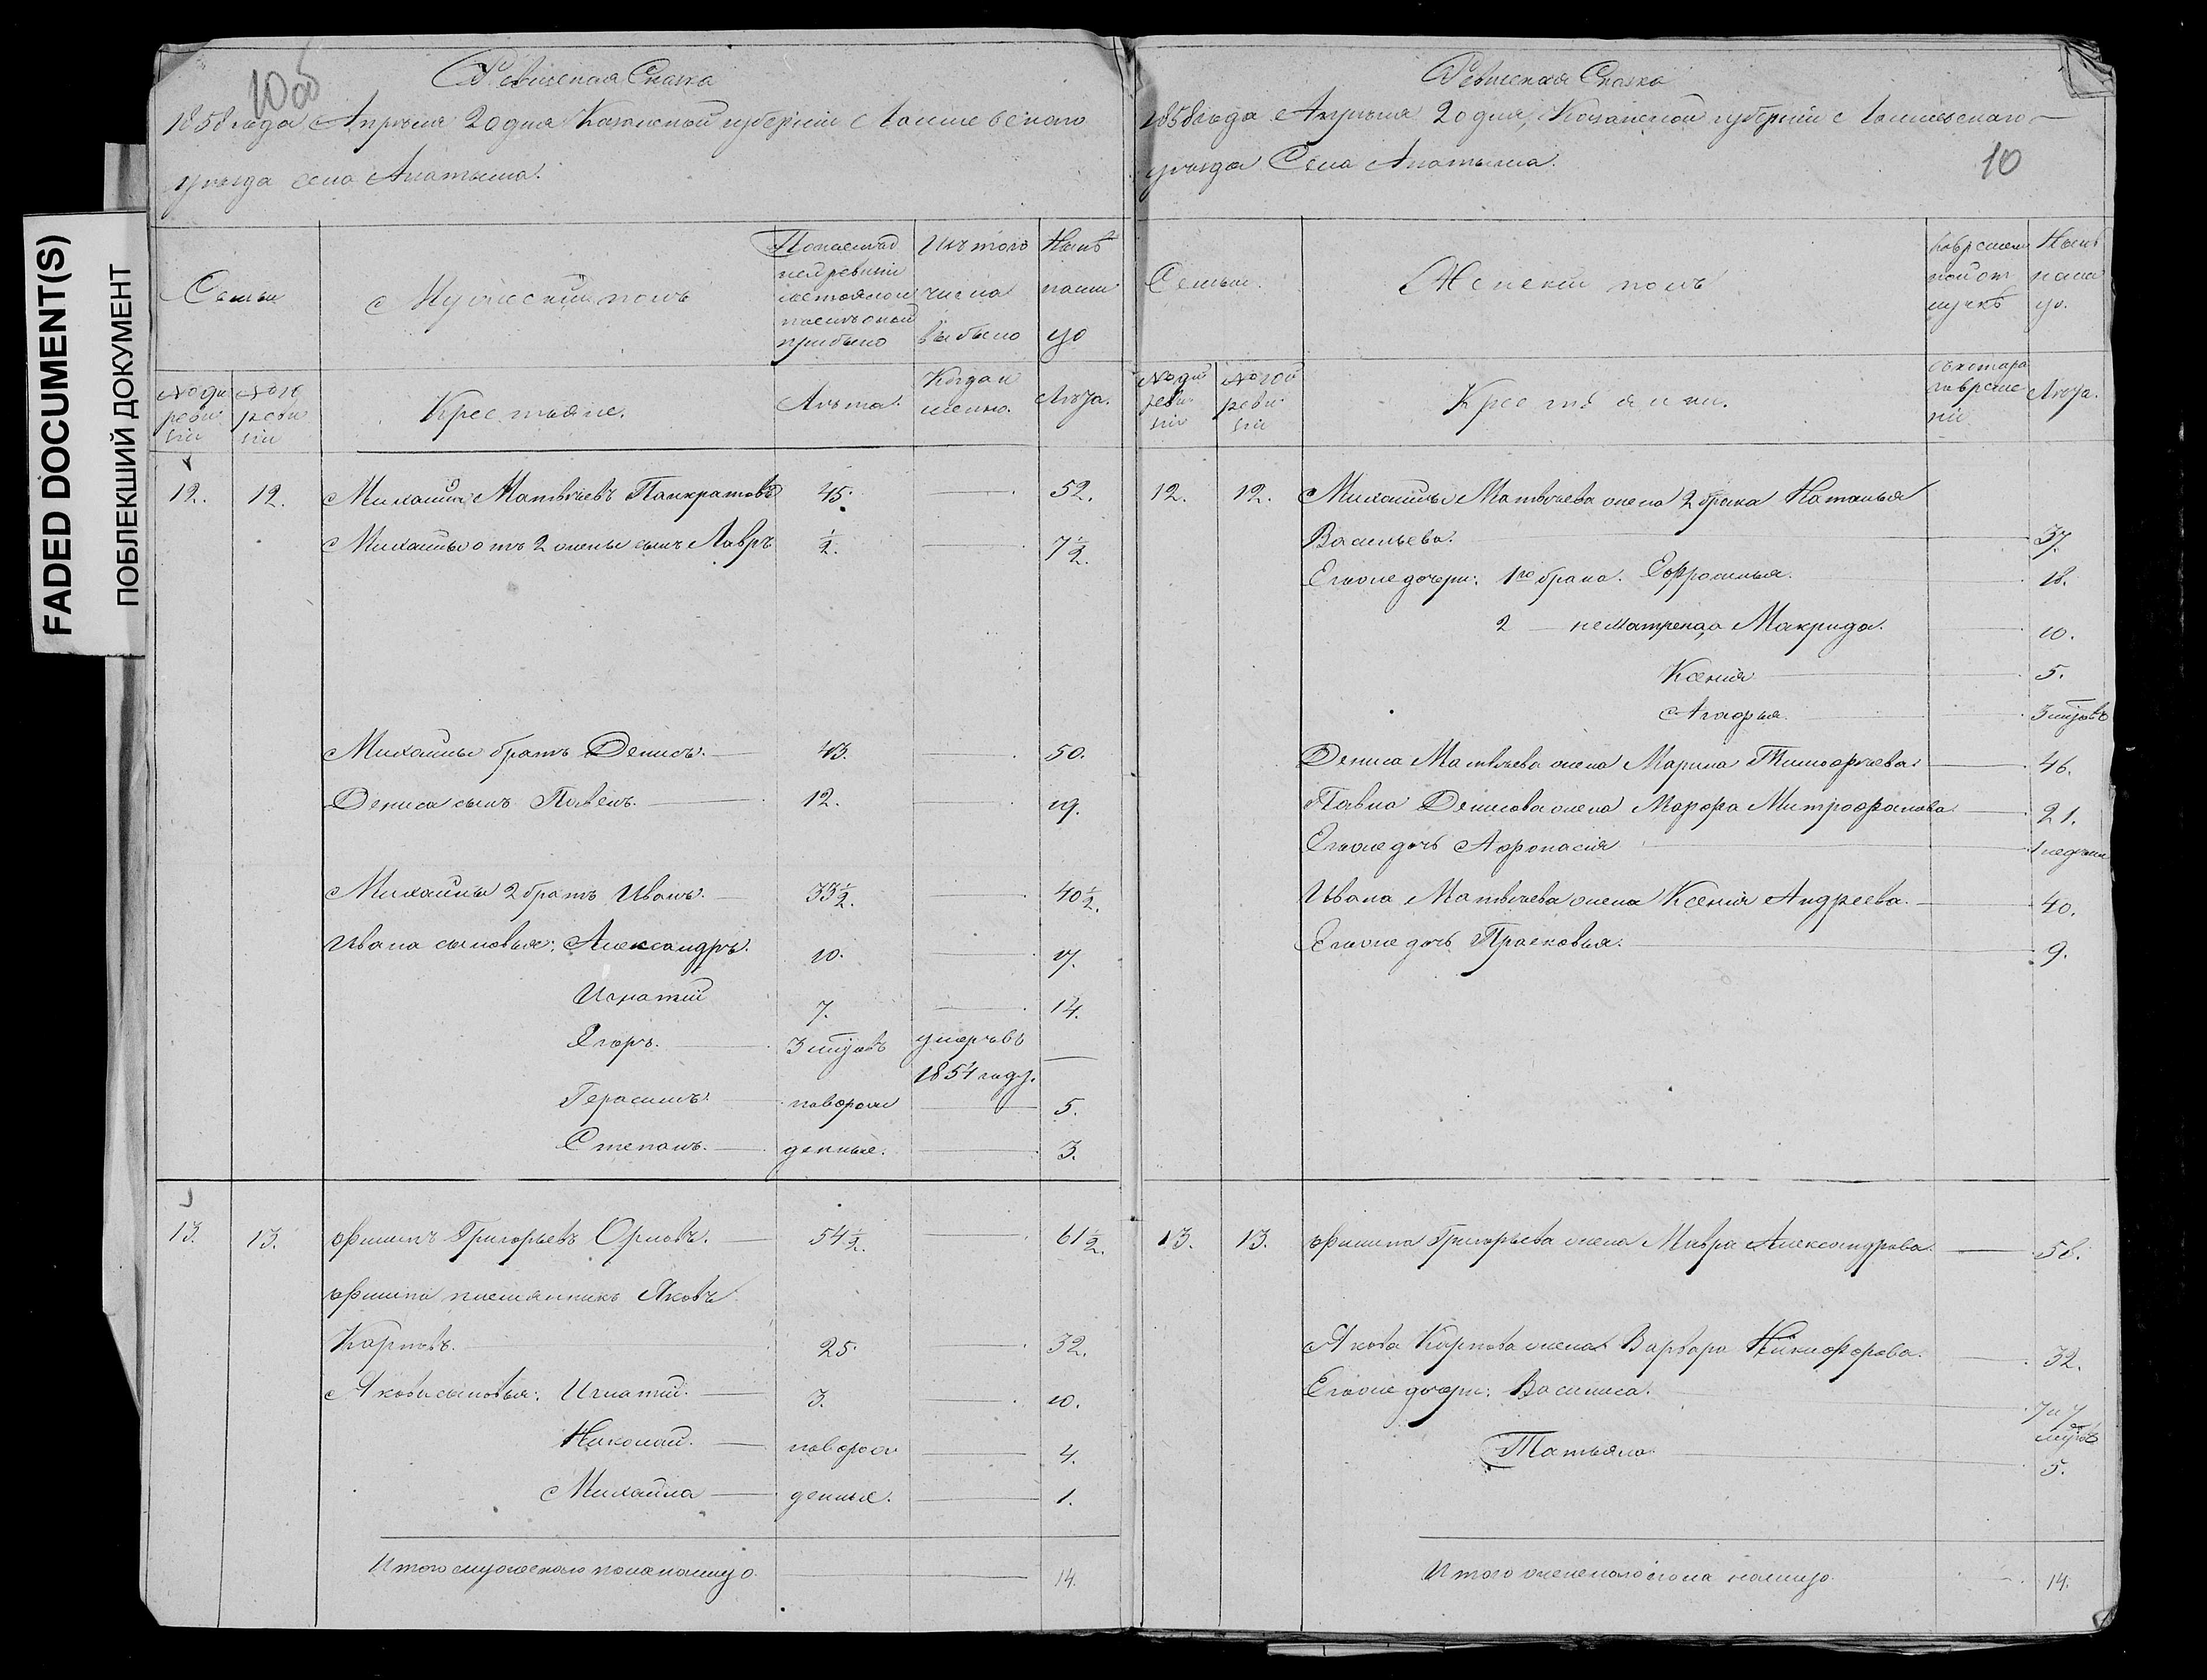 FADED DOCUMENT(S)
ПОБЛЕКШИЙ ДОКУМЕНТ
10 об
Ревизская Сказка
1858 года Апреля 20 дня Казанской губернии Лаишевскаго
уезда села Анатыша.
Семьи
Мужеский полъ
По последней ревизіи состояло и после оной прибыло
Изъ того числа выбыло
Ныне на лицо
№ ой ревизіи
№ 10 ревизіи
Крестьяне.
Лета.
Когда именно.
Лета.
12. 12. Михаила Матвеевъ Панкратовъ 45. 52.
Михайлы отъ 2 жены сынъ Лавръ ½. 7½.
Михайлы братъ Денисъ. 43. 50.
Дениса сынъ Павелъ. 12. 19.
Михайлы 2 братъ Иванъ. 33½. 40½.
Ивана сыновья: Александръ. 10. 17.
Игнатій 7. 14.
Егоръ. 3 меся умеръ въ 1854 году.
Герасимъ. новорож 5.
Степанъ. денные. 3.
13. 13. Филипъ Григорьевъ Орловъ. 54½. 61½.
Филипа племянникъ Яковъ
Карповъ. 25. 32.
Якова сыновья: Игнатій. 3. 10.
Николай. новорож 4.
Михайла денные. 1.
Итого мужескаго пола на лицо. 14.
Ревизская Сказка
1858 года Апреля 20 дня, Казанской губерніи Лаишевскаго
уезда Села Анатыша.
10
Семьи.
Женскій полъ
Во временной отлучке
Ныне на лицо.
№ ой ревизіи
№ 10 ой ревизіи
Крестьянки.
Съ котораго времени
Лета.
12. 12. Михайлы Матвеева жена 2 брака Наталья
Васильева. 37.
Его же дочери: 1го брака. Ефросинья. 18.
2 — не Матрена, а Макрида. 10.
Ксенія 5.
Агафья. 3 месяцовъ
Дениса Матвеева жена Марина Тимофеева. 46.
Павла Денисова жена Марфа Митрофанова 21.
Его же дочь Афонасія 1 недели
Ивана Матвеева жена Ксенія Андреева. 40.
Его же дочь Прасковья. 9.
13. 13. Филипа Григорьева жена Мавра Александрова. 58.
Якова Карпова жена Варвара Никифорова. 32.
Его же дочери: Василиса. 7 и 7 месяцовъ
Татьяна. 5.
Итого женскаго пола на лицо. 14.